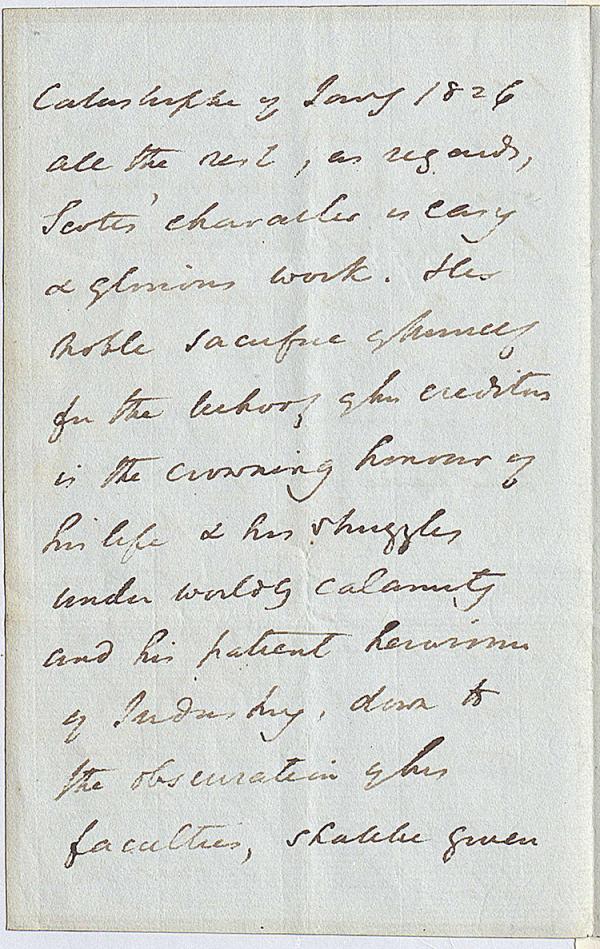 Catastrophe of Jany 1826
all the rest, as regards,
Scotts' character is easy
& glorious work. His
noble sacrifice of himself
for the behoof of his creditors
is the crowning honour of
his life & his struggles
under worldly calamity
and his patient heroism
of Industry, down to
the obscuration of his
faculties, shall be given